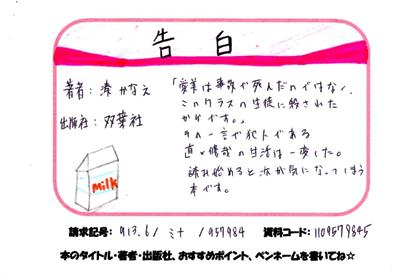 告白
著者：湊かなえ
出版社：双葉社
「愛美は事故で死んだのではなく、
このクラスの生徒に殺された
からです。」
その一言で犯人である
直・修哉の生活は一変した。
読み始めると次が気になってしまう
本です。
Milk
請求記号： 913.6/ ミナ /957984 資料コード：1109579845
本のタイトル・著者・出版社、おすすめポイント、ペンネームを書いてね☆